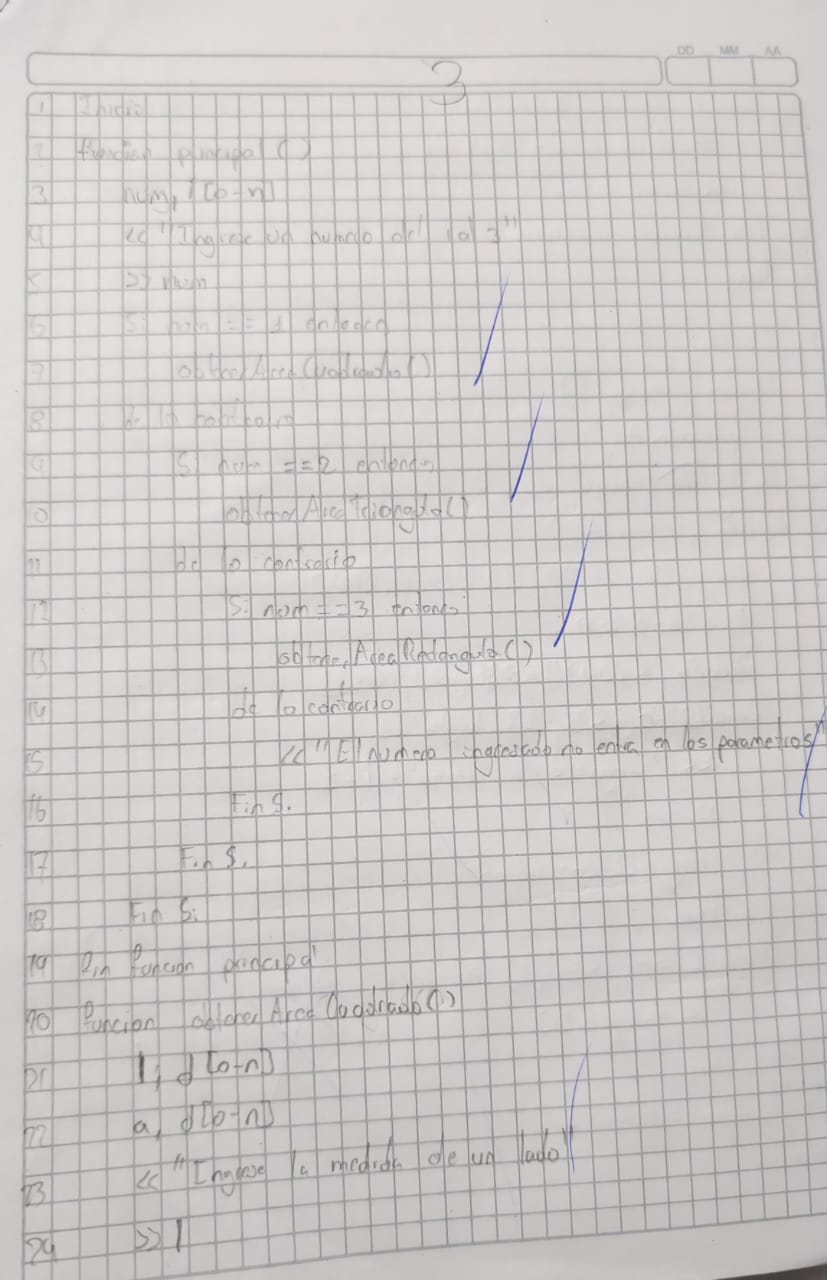 DD MM AA
3
1 Inicio
2 funcion principal ()
3 num, i [0-n]
4 << "Ingrese un numero del 1 al 3"
5 >> num
6 Si num == 1 entonces
7 obtenerAreaCuadrado()
8 de lo contrario
9 Si num == 2 entonces
10 obtenerAreaTriangulo()
11 de lo contrario
12 Si num == 3 entonces
13 obtenerAreaRectangulo()
14 de lo contrario
15 << "El numero ingresado no entra en los parametros"
16 Fin Si
17 Fin Si
18 Fin Si
19 Fin funcion principal
20 funcion obtenerAreaCuadrado()
21 l, d [0-n]
22 a, d [0-n]
23 << "Ingrese la medida de un lado"
24 >> l